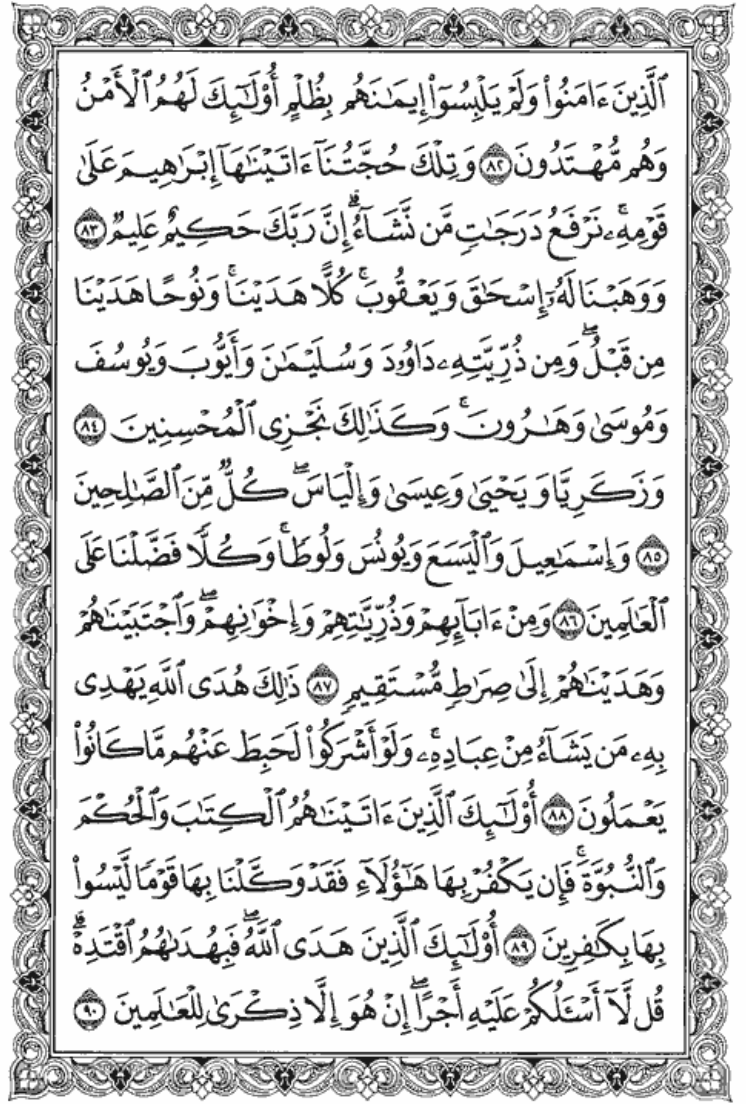 ٱلَّذِينَ ءَامَنُوا۟ وَلَمْ يَلْبِسُوٓا۟ إِيمَـٰنَهُم بِظُلْمٍ أُو۟لَـٰٓئِكَ لَهُمُ ٱلْأَمْنُ
وَهُم مُّهْتَدُونَ ٨٢ وَتِلْكَ حُجَّتُنَآ ءَاتَيْنَـٰهَآ إِبْرَٰهِيمَ عَلَىٰ
قَوْمِهِۦ ۚ نَرْفَعُ دَرَجَـٰتٍ مَّن نَّشَآءُ ۗ إِنَّ رَبَّكَ حَكِيمٌ عَلِيمٌ ٨٣
وَوَهَبْنَا لَهُۥٓ إِسْحَـٰقَ وَيَعْقُوبَ ۚ كُلًّا هَدَيْنَا ۚ وَنُوحًا هَدَيْنَا
مِن قَبْلُ ۖ وَمِن ذُرِّيَّتِهِۦ دَاوُۥدَ وَسُلَيْمَـٰنَ وَأَيُّوبَ وَيُوسُفَ
وَمُوسَىٰ وَهَـٰرُونَ ۚ وَكَذَٰلِكَ نَجْزِى ٱلْمُحْسِنِينَ ٨٤
وَزَكَرِيَّا وَيَحْيَىٰ وَعِيسَىٰ وَإِلْيَاسَ ۖ كُلٌّ مِّنَ ٱلصَّـٰلِحِينَ
٨٥ وَإِسْمَـٰعِيلَ وَٱلْيَسَعَ وَيُونُسَ وَلُوطًا ۚ وَكُلًّا فَضَّلْنَا عَلَى
ٱلْعَـٰلَمِينَ ٨٦ وَمِنْ ءَابَآئِهِمْ وَذُرِّيَّـٰتِهِمْ وَإِخْوَٰنِهِمْ ۖ وَٱجْتَبَيْنَـٰهُمْ
وَهَدَيْنَـٰهُمْ إِلَىٰ صِرَٰطٍ مُّسْتَقِيمٍ ٨٧ ذَٰلِكَ هُدَى ٱللَّهِ يَهْدِى
بِهِۦ مَن يَشَآءُ مِنْ عِبَادِهِۦ ۚ وَلَوْ أَشْرَكُوا۟ لَحَبِطَ عَنْهُم مَّا كَانُوا۟
يَعْمَلُونَ ٨٨ أُو۟لَـٰٓئِكَ ٱلَّذِينَ ءَاتَيْنَـٰهُمُ ٱلْكِتَـٰبَ وَٱلْحُكْمَ
وَٱلنُّبُوَّةَ ۚ فَإِن يَكْفُرْ بِهَا هَـٰٓؤُلَآءِ فَقَدْ وَكَّلْنَا بِهَا قَوْمًا لَّيْسُوا۟
بِهَا بِكَـٰفِرِينَ ٨٩ أُو۟لَـٰٓئِكَ ٱلَّذِينَ هَدَى ٱللَّهُ ۖ فَبِهُدَىٰهُمُ ٱقْتَدِهْ ۗ
قُل لَّآ أَسْـَٔلُكُمْ عَلَيْهِ أَجْرًا ۖ إِنْ هُوَ إِلَّا ذِكْرَىٰ لِلْعَـٰلَمِينَ ٩٠